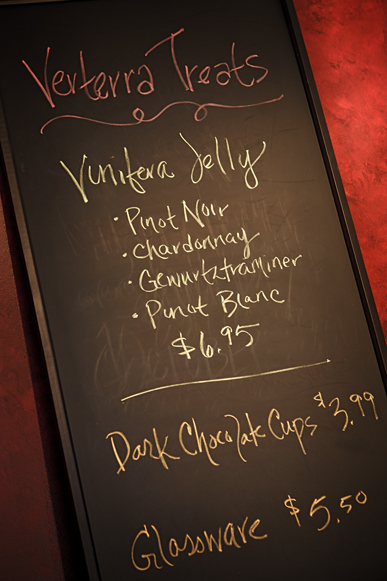 Verterra Treats
Vinifera Jelly
• Pinot Noir
• Chardonnay
• Gewurtztraminer
• Pinot Blanc
$6.95
Dark Chocolate Cups $3.99
Glassware $5.50